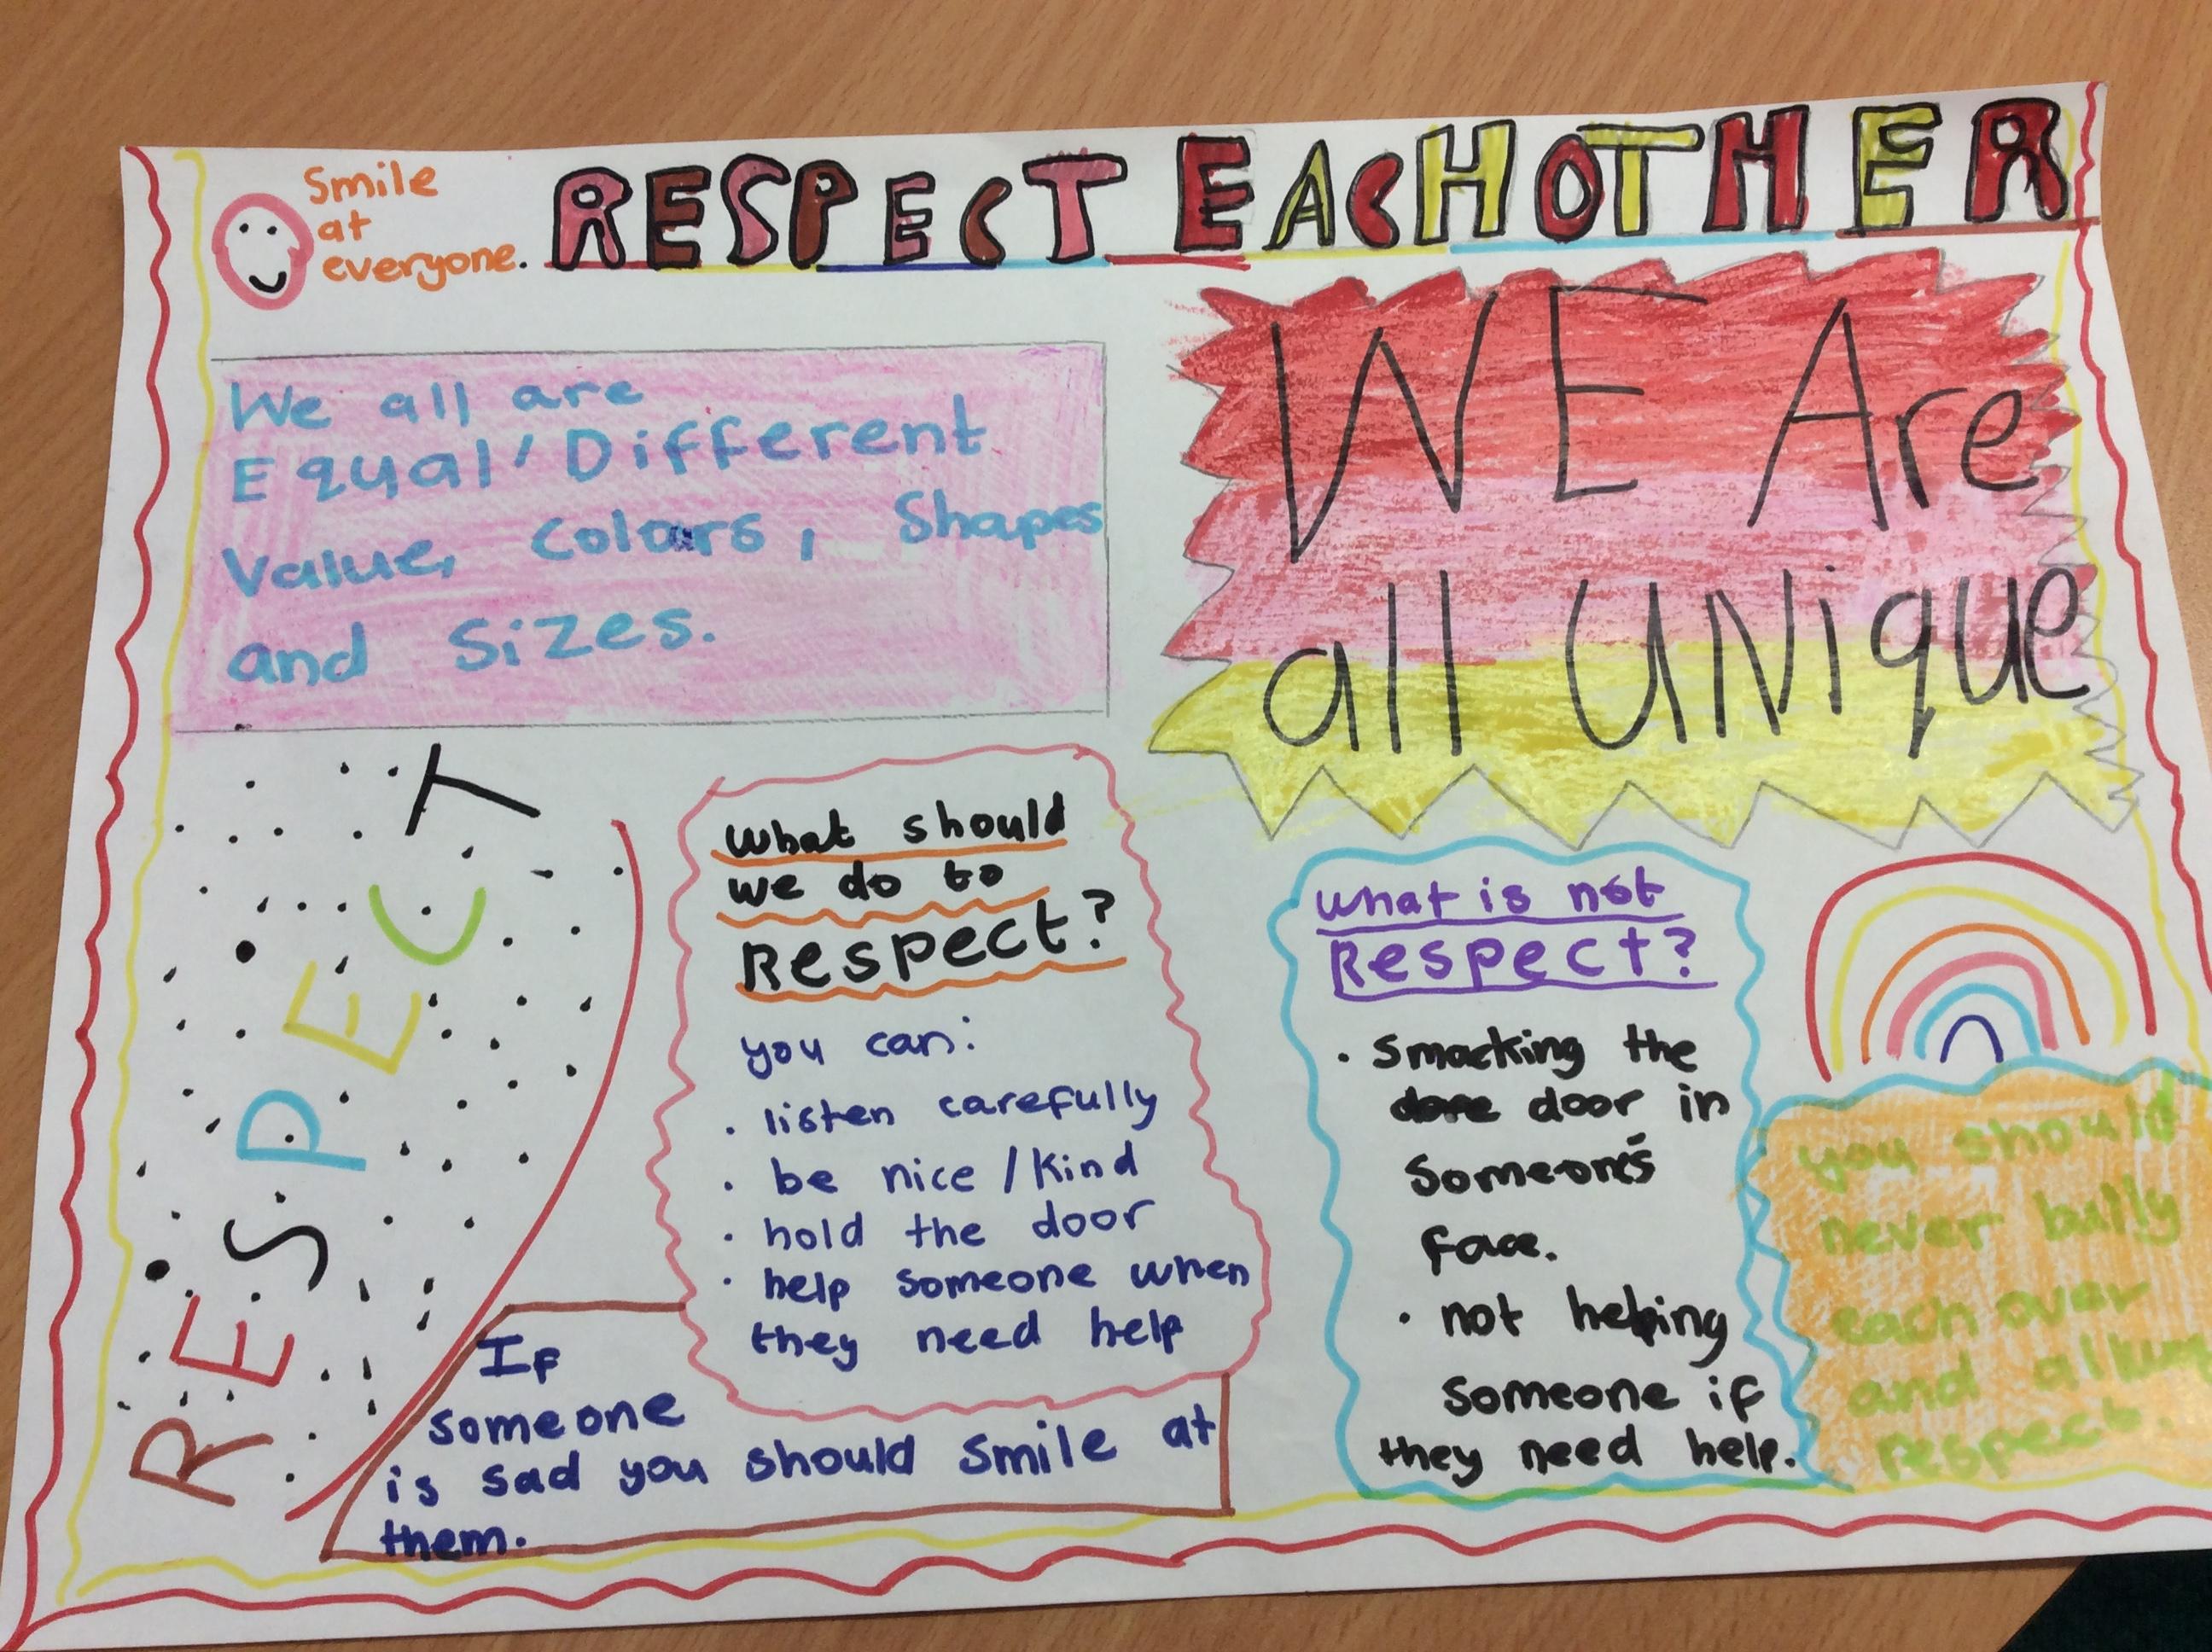 Smile
at
everyone.
RESPECT EACHOTHER
We all are
Equal/Different
Value, Colours, Shapes
and Sizes.
WE Are
all UNique
RESPECT
What should
we do to
Respect?
you can:
. listen carefully
. be nice / kind
. hold the door
. help someone when
they need help
If
someone
is sad you should smile at
them.
What is not
Respect?
. Smacking the
door in
Someone's
face.
. not helping
someone if
they need help.
you should
never bully
each over
and
respect.